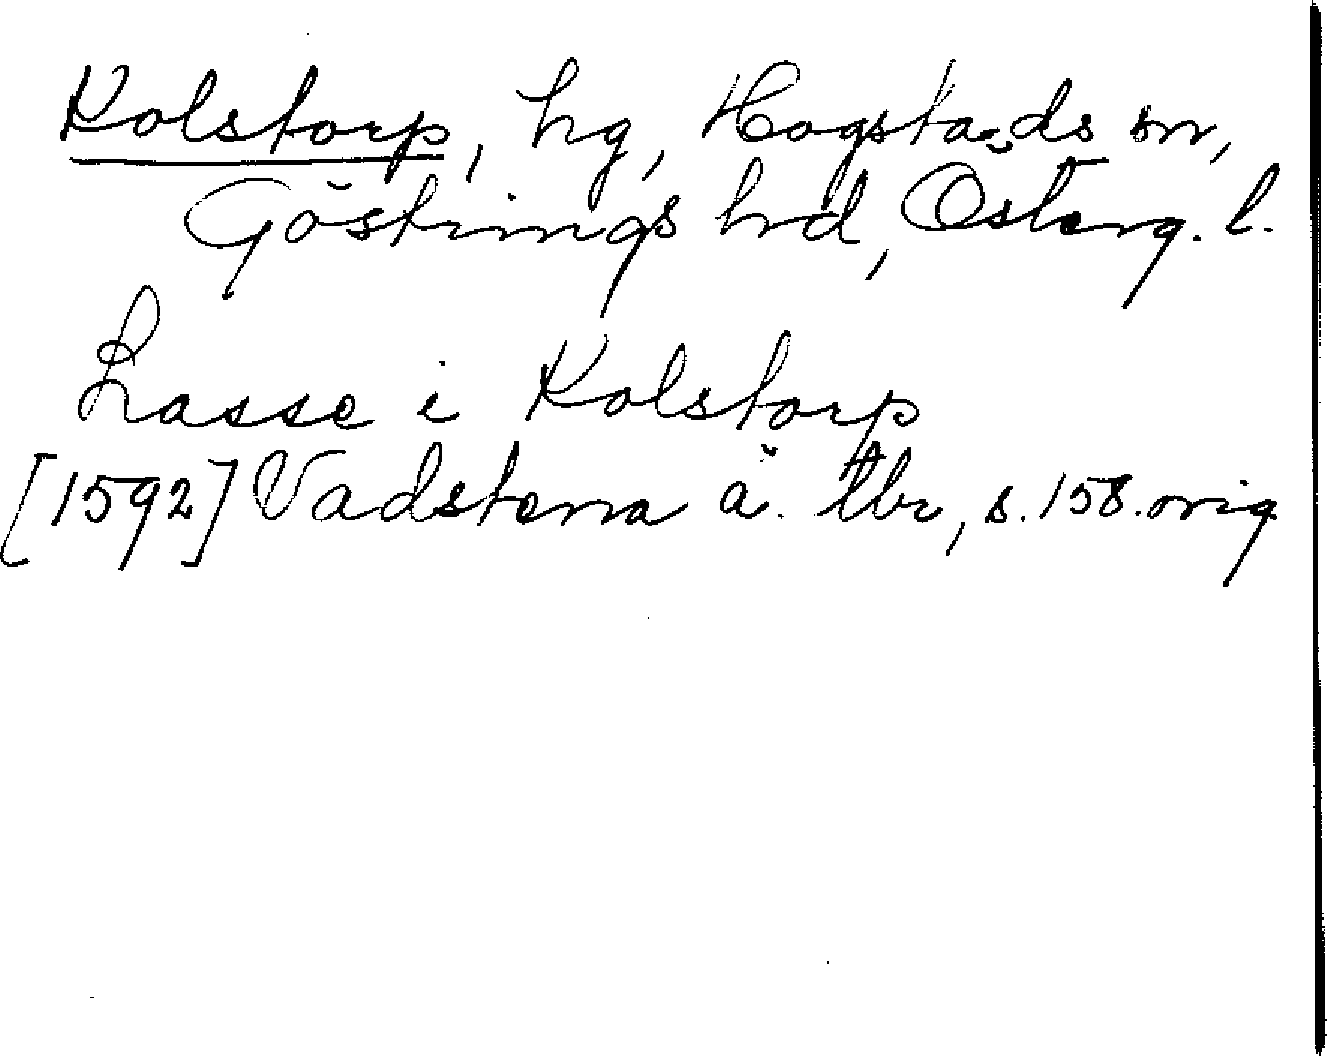 Kolstorp, hg, Hogstads sn,
Göstrings hrd, Österg. l.
Lasse i Kolstorp
[1592] Vadstena ä. tbr, s. 158. orig